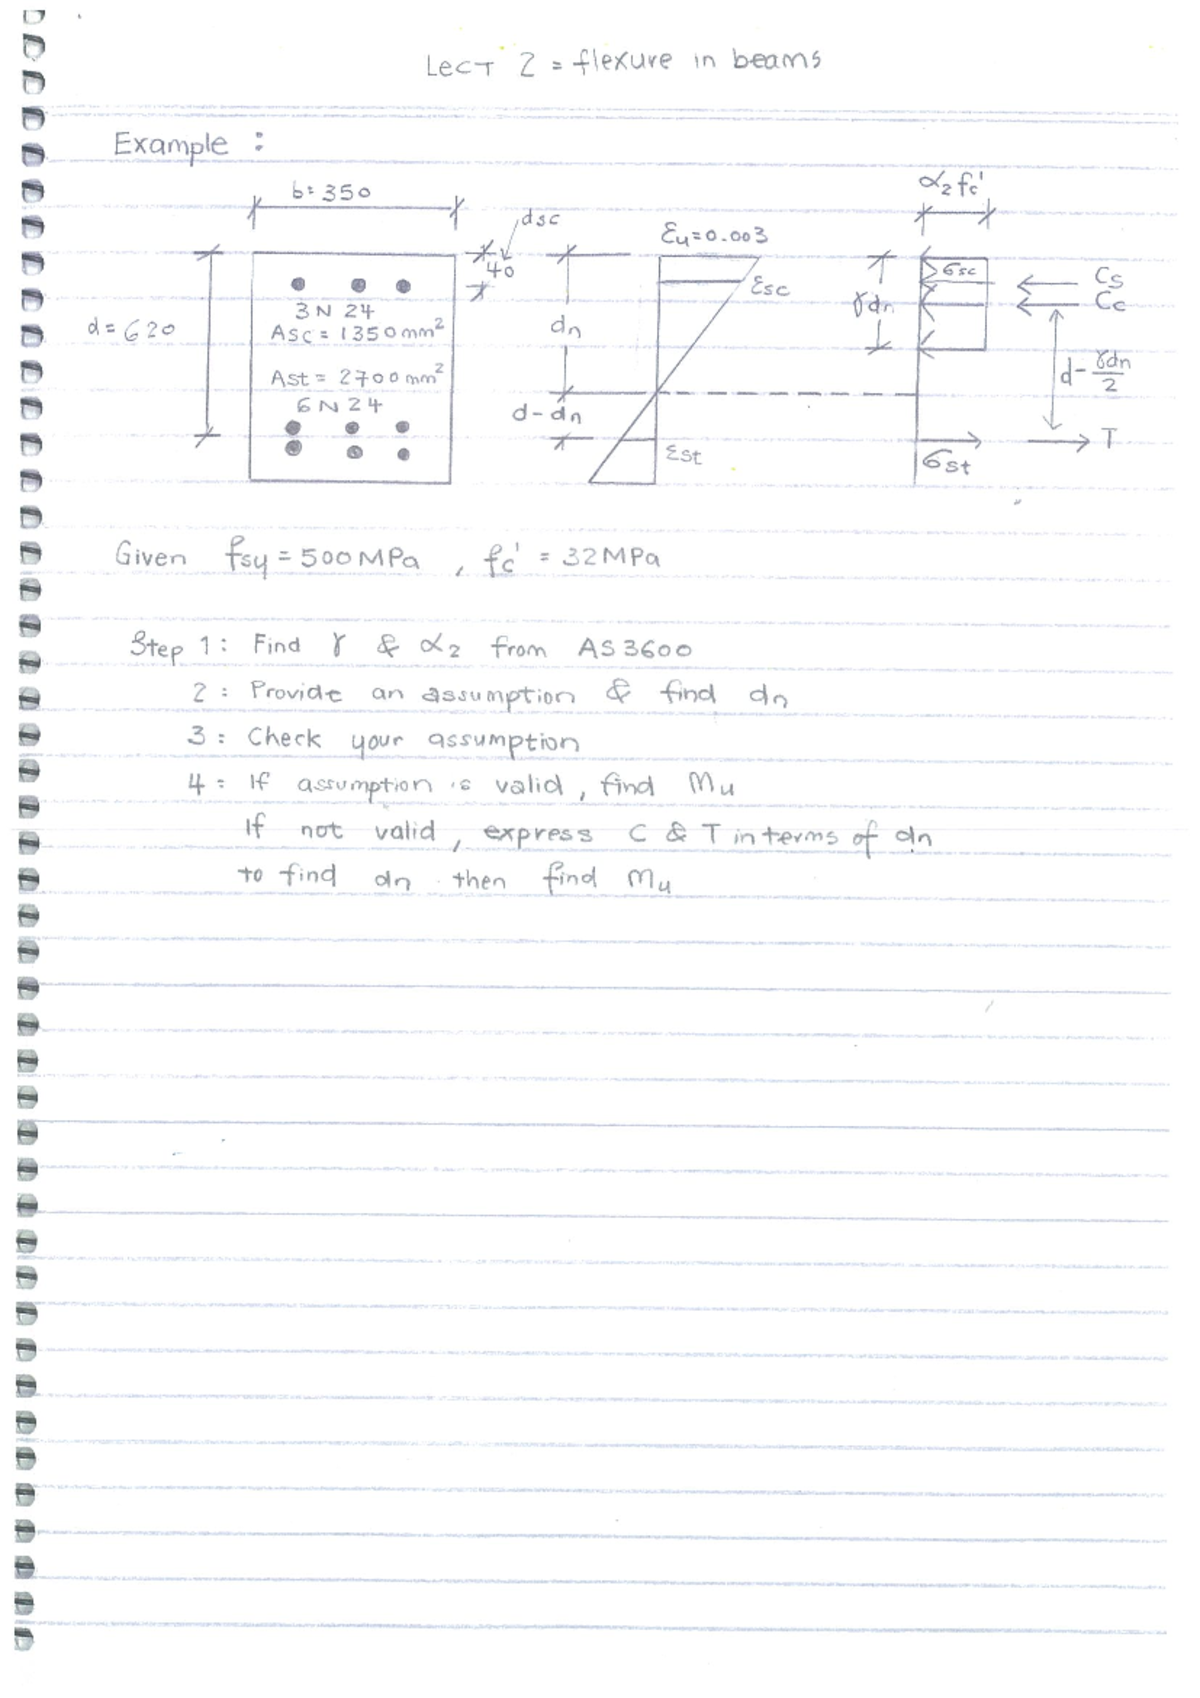 Lect 2 = flexure in beams
Example :
b = 350
dsc
40
d = 620
3 N 24
Asc = 1350 mm²
Ast = 2700 mm²
6 N 24
dn
d - dn
εu = 0.003
εsc
εst
α₂ fc'
γdn
σsc
Cs
Cc
d - γdn/2
T
σst
Given fsy = 500 MPa , fc' = 32 MPa
Step 1 : Find γ & α₂ from AS 3600
2 : Provide an assumption & find dn
3 : Check your assumption
4 : If assumption is valid, find Mu
If not valid, express C & T in terms of dn
to find dn then find Mu